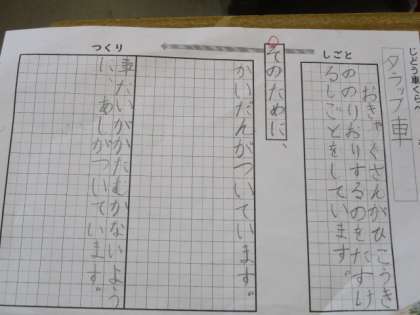 じどう車くらべ
タラップ車
しごと
おきゃくさんがひこうき
ののりおりするのをたすけ
るしごとをしています。
そのために、
つくり
かいだんがついています。
車たいがかたむかないよう
に、あしがついています。